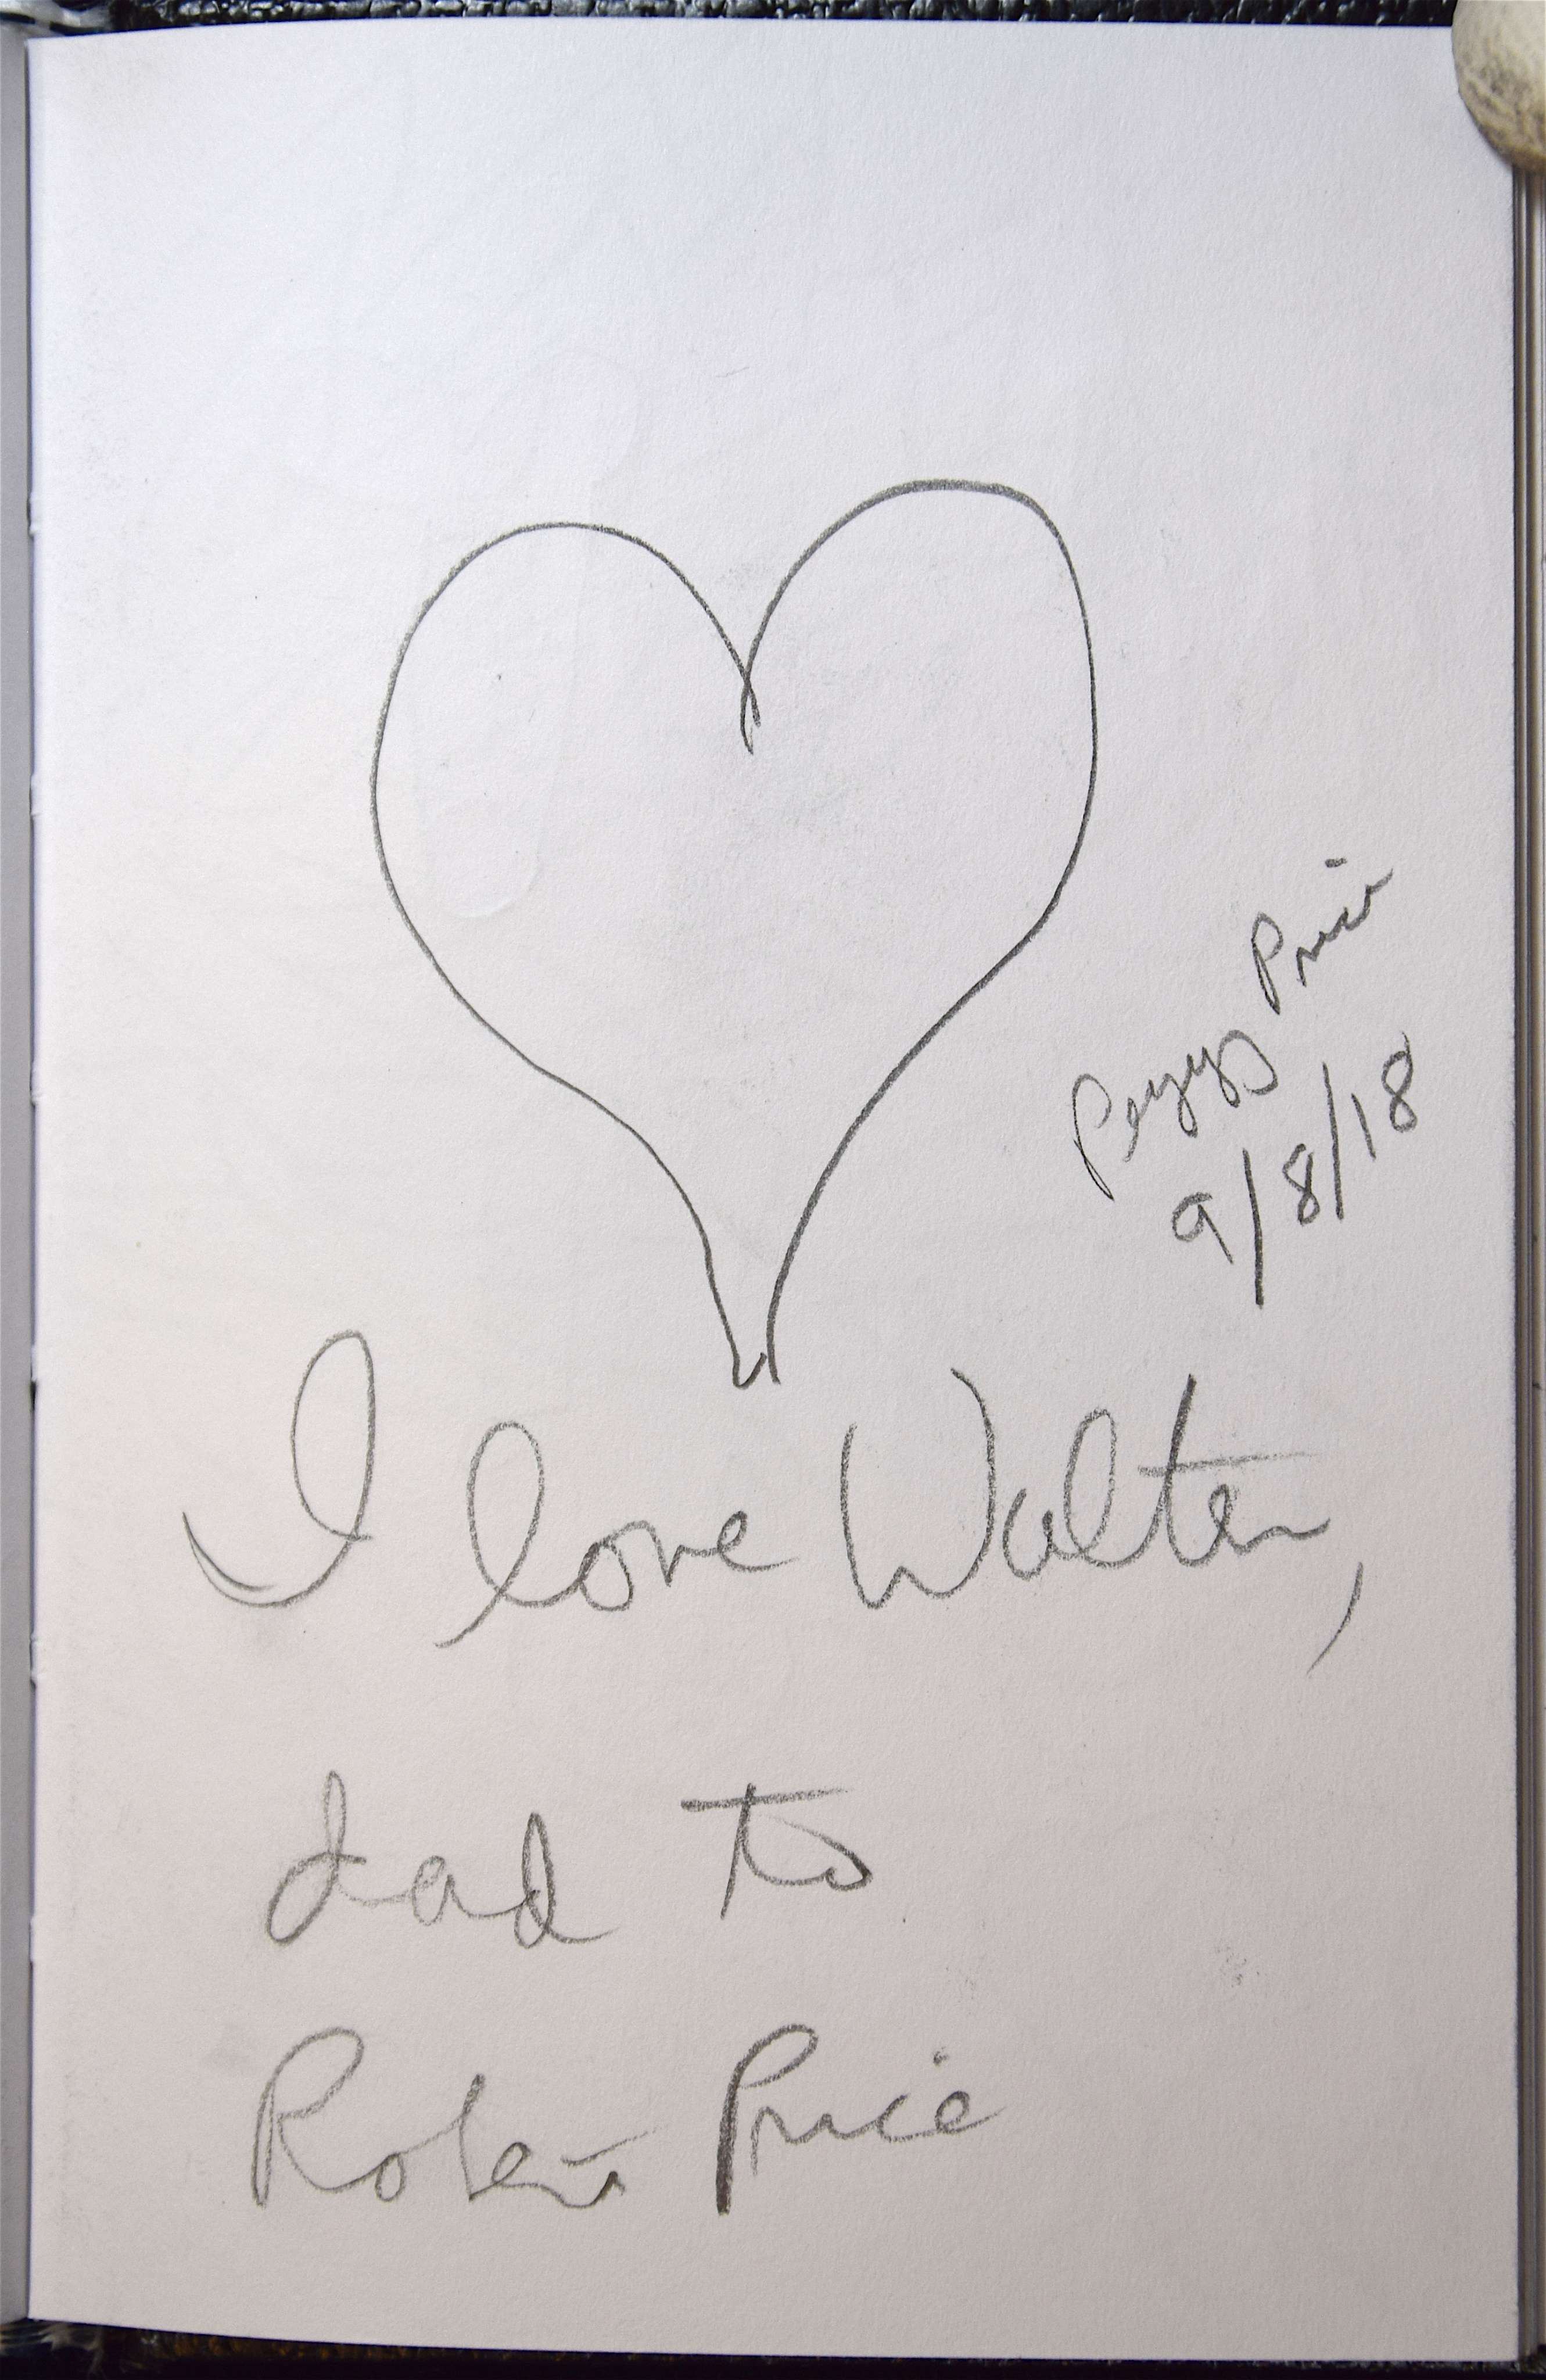 Peggy Price
9/8/18
I love Walter,
dad to
Robert Price